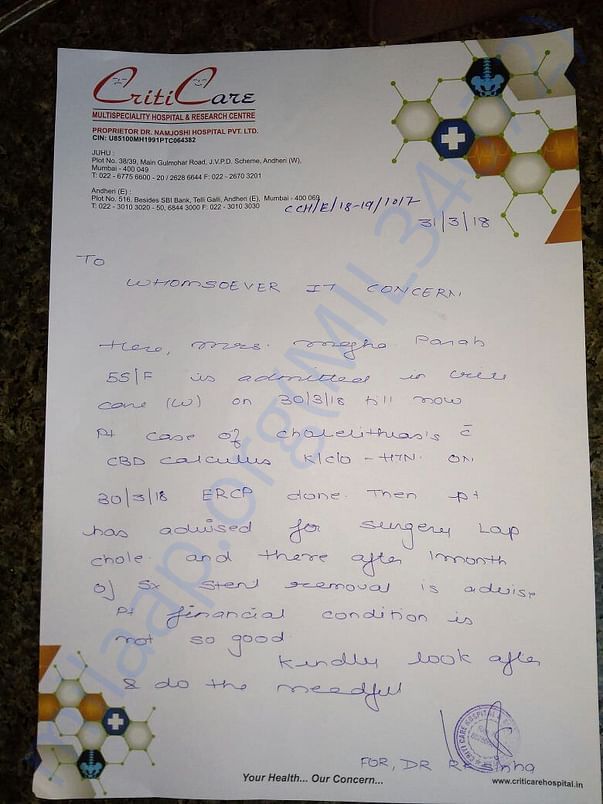 CritiCare
MULTISPECIALITY HOSPITAL & RESEARCH CENTRE
PROPRIETOR DR. NAMJOSHI HOSPITAL PVT. LTD.
CIN: U85100MH1991PTC064382
JUHU :
Plot No. 38/39, Main Gulmohar Road, J.V.P.D. Scheme, Andheri (W),
Mumbai - 400 049
T: 022 - 6775 6600 - 20 / 2628 6644 F: 022 - 2670 3201
Andheri (E) :
Plot No. 516, Besides SBI Bank, Telli Galli, Andheri (E), Mumbai - 400 069
T: 022 - 3010 3020 - 50, 6844 3000 F: 022 - 3010 3030
CCH/E/18-19/1017
31/3/18
To
WHOMSOEVER IT CONCERN
Here, Mrs. Megha Parab
55/F is admitted in
care (W) on 30/3/18 till now
Pt case of cholelithiasis c̄
CBD calculus K/C/O - HTN. ON
30/3/18 ERCP done. Then pt
has advised for surgery Lap
chole. and there after 1month
of Sx stent removal is advise
Pt financial condition is
not so good
Kindly look after
& do the needful
FOR, DR Sinha
Your Health... Our Concern...
www.criticarehospital.in